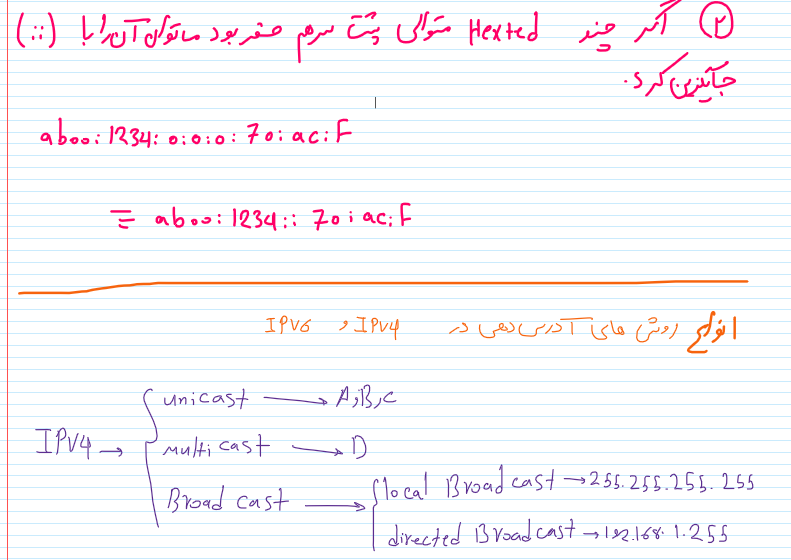 ② اگر چند Hexted متوالی پشت سرهم صفر بود ما توان آن را با (::)
جایگزین کرد.
ab00:1234:0:0:0:70:ac:F
≡ ab00:1234::70:ac:F
انواع روش های آدرس دهی در IPV4 و IPV6
IPV4 →
unicast → A,B,C
multi cast → D
Broad cast →
local Broad cast → 255.255.255.255
directed Broadcast → 192.168.1.255